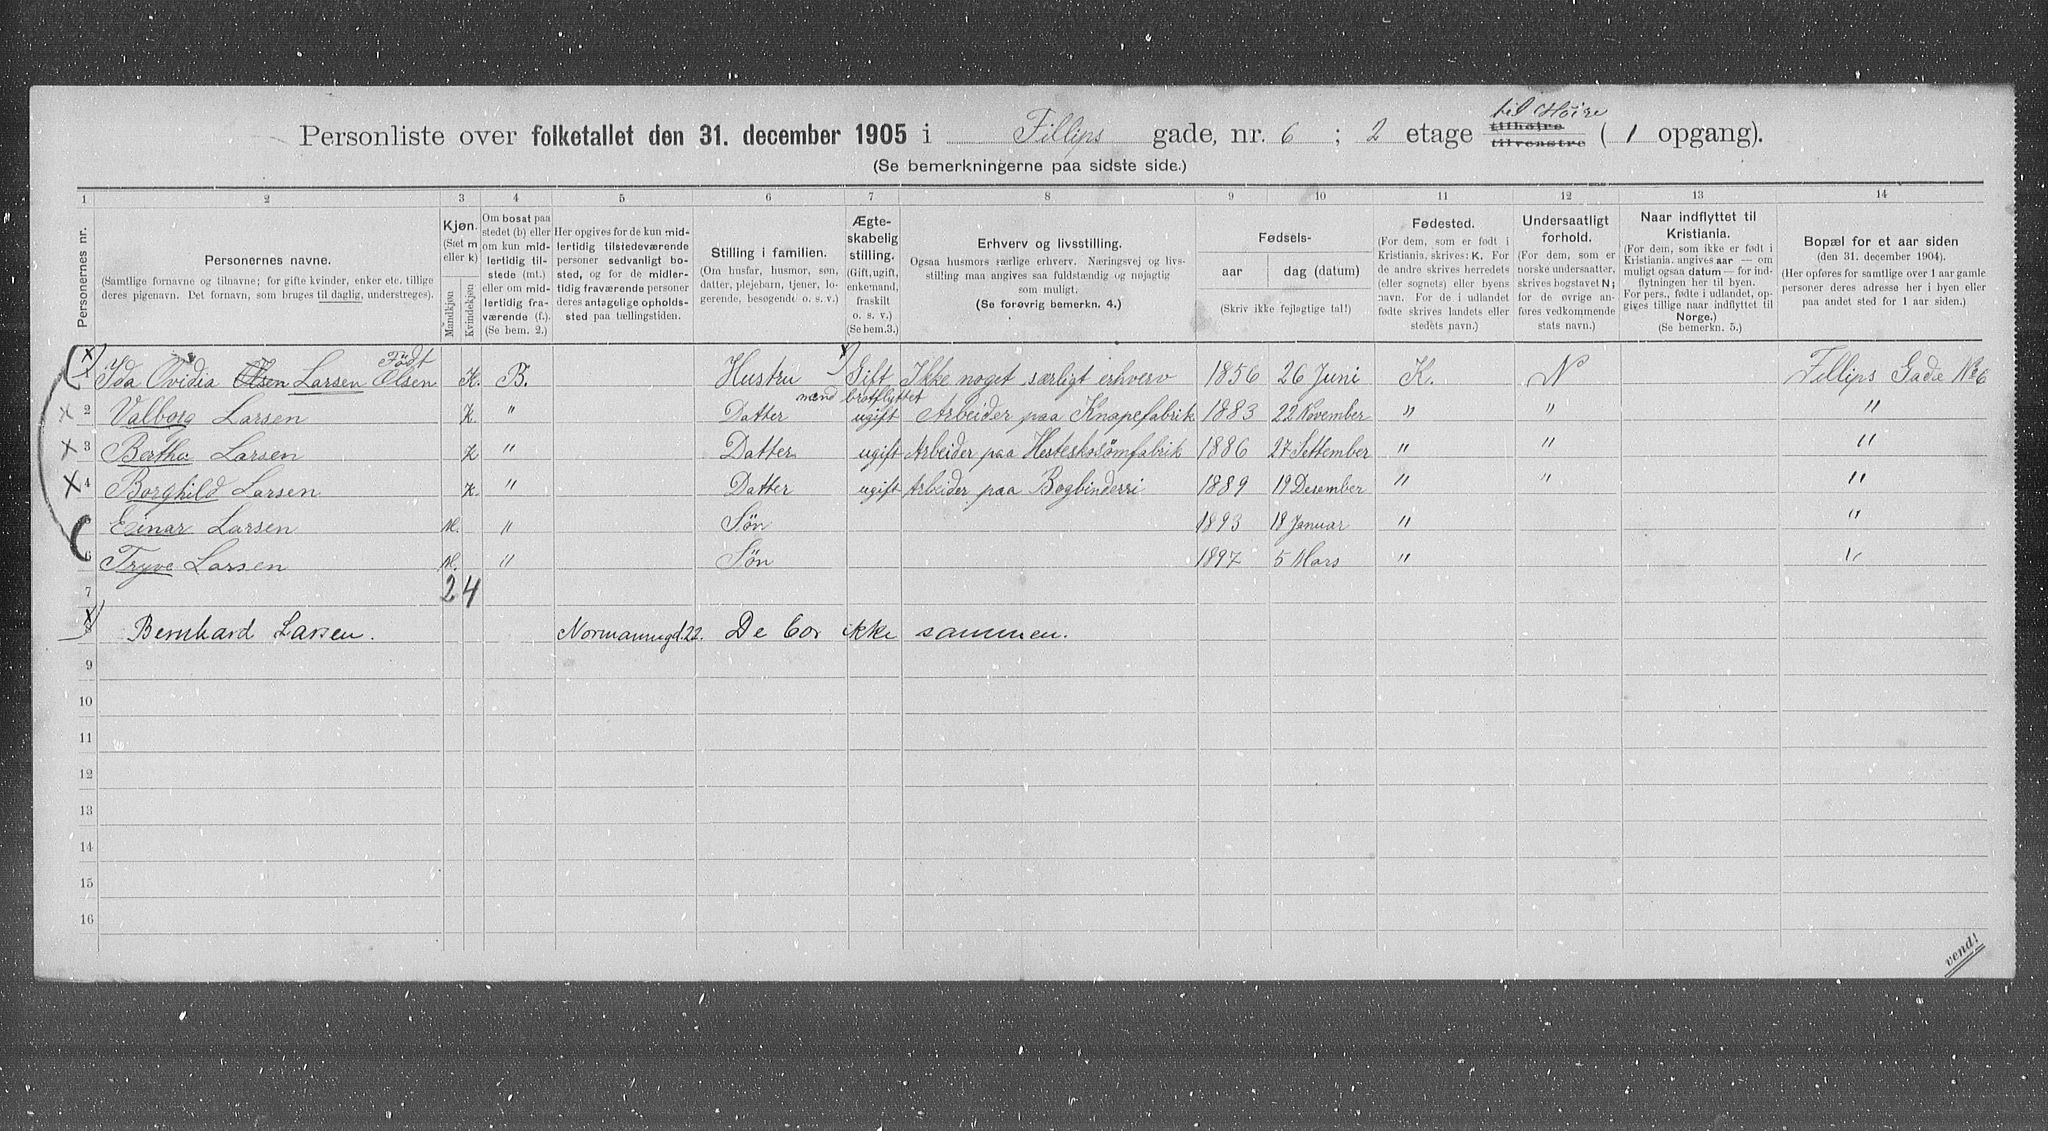 Personliste over folketallet den 31. december 1905 i Fillips gade, nr. 6 ; 2 etage tilhøire tilvenstre til Höire ( 1 opgang).
(Se bemerkningerne paa sidste side.)
1 2 3 4 5 6 7 8 9 10 11 12 13 14
Personernes nr.
Personernes navne.
(Samtlige fornavne og tilnavne; for gifte kvinder, enker etc. tillige
deres pigenavn. Det fornavn, som bruges til daglig, understreges).
Kjøn.
(Sæt m
eller k)
Mandkjøn
Kvindekjøn
Om bosat paa
stedet (b) eller
om kun mid-
lertidig til-
stede (mt.)
eller om mid-
lertidig fra-
værende (f.).
(Se bem. 2.)
Her opgives for de kun mid-
lertidig tilstedeværende
personer sedvanligt bo-
sted, og for de midler-
tidig fraværende personer
deres antagelige opholds-
sted paa tællingstiden.
Stilling i familien.
(Om husfar, husmor, søn,
datter, plejebarn, tjener, lo-
gerende, besøgende o. s. v.)
Ægte-
skabelig
stilling.
(Gift, ugift,
enkemand,
fraskilt
o. s. v.)
(Se bem.3.)
Erhverv og livsstilling.
Ogsaa husmors særlige erhverv. Næringsvej og livs-
stilling maa angives saa fuldstændig og nøjagtig
som muligt.
(Se forøvrig bemerkn. 4.)
Fødsels-
aar dag (datum)
(Skriv ikke fejlagtige tal!)
Fødested.
(For dem, som er født i
Kristiania, skrives: K. For
de andre skrives herredets
(eller sognets) eller byens
navn. For de i udlandet
fødte skrives landets eller
stedets navn.)
Undersaatligt
forhold.
(For dem, som er
norske undersaatter,
skrives bogstavet N;
for de øvrige an-
føres vedkommende
stats navn.)
Naar indflyttet til
Kristiania.
(For dem, som ikke er født i
Kristiania. angives aar — om
muligt ogsaa datum — for ind-
flytningen her til byen.
For pers., fødte i udlandet, op-
gives tillige naar indflyttet til
Norge.)
(Se bemerkn. 5.)
Bopæl for et aar siden
(den 31. december 1904).
(Her opføres for samtlige over 1 aar gamle
personer deres adresse her i byen eller
paa andet sted for 1 aar siden.)
Født
Ida Ovidia Olsen Larsen Olsen K. B. Hustru Gift Ikke noget særligt erhverv 1856 26 Juni K. N Fillips Gade No 6
mand bortflyttet
2 Valborg Larsen K. " Datter ugift Arbeider paa Knapefabrik 1883 22 November " " "
3 Bertha Larsen K " Datter ugift Arbeider paa Hesteskosömfabrik 1886 27 Settember " " "
4 Borghild Larsen K. " Datter ugift Arbeider paa Bogbinderri 1889 19 Desember " " "
Einar Larsen M. " Sön 1893 18 Januar " "
6 Tryve Larsen M. " Sön 1897 5 Mars " "
7 2 4
8 Bernhard Larsen. Normannsgd. 22. De bor ikke sammen.
9
10
11
12
13
14
15
16
vend!